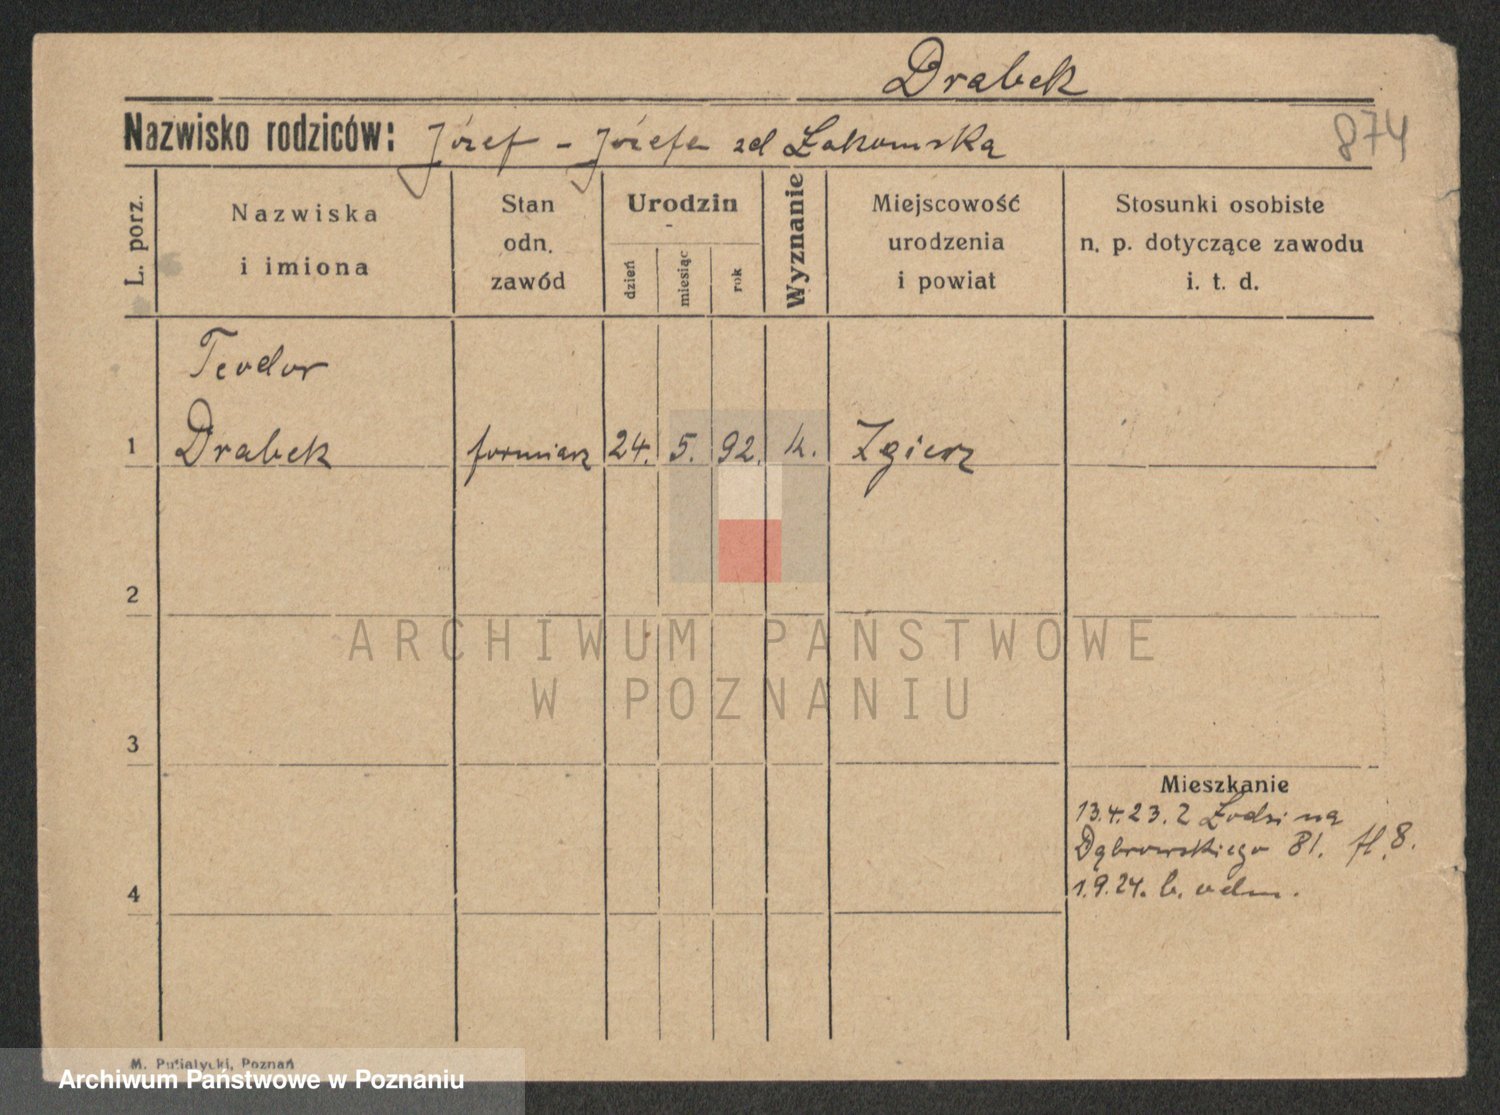 Drabek
Nazwisko rodziców: Józef - Józefa zd Łakomska
874
L. porz.
Nazwiska
i imiona
Stan
odn.
zawód
Urodzin
dzień
miesiąc
rok
Wyznanie
Miejscowość
urodzenia
i powiat
Stosunki osobiste
n. p. dotyczące zawodu
i. t. d.
Teodor
1 Drabek formiarz 24. 5. 92. k. Zgierz
2
3
4
Mieszkanie
13.4.23. Z Łodzi na
Dąbrowskiego 81. fl. 8.
1.9.24. b. odm.
ARCHIWUM PAŃSTWOWE
W POZNANIU
M. Putiatycki, Poznań
Archiwum Państwowe w Poznaniu